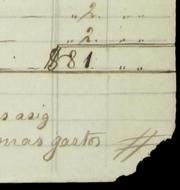 „ 2. „ „
„ 2. „ „
$ 81. „ „
s asig
mas gastos